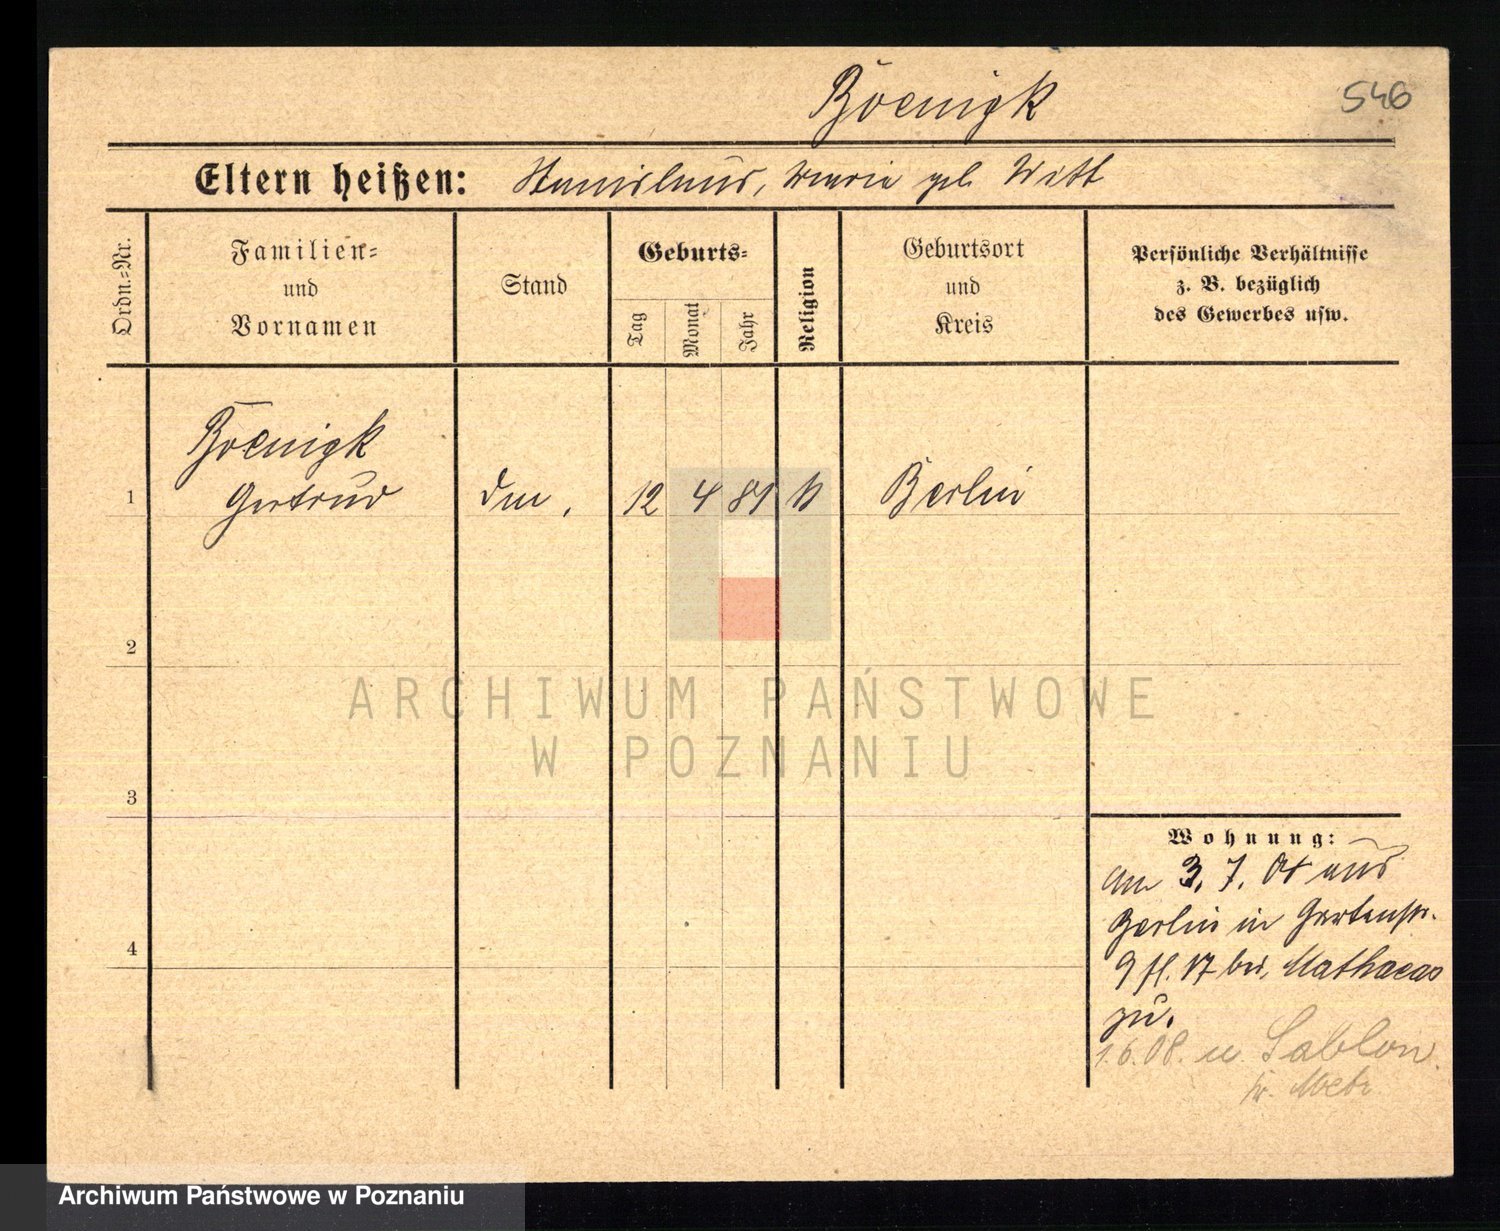 Boenigk
546
Eltern heißen: Stanislaus, Maria geb. Witt
Ordn.-Nr.
Familien-
und
Vornamen
Stand
Geburts-
Tag
Monat
Jahr
Religion
Geburtsort
und
Kreis
Persönliche Verhältnisse
z. B. bezüglich
des Gewerbes usw.
Boenigk
1 Gertrud 12 4 81 Berlin
2
3
4
ARCHIWUM PAŃSTWOWE
W POZNANIU
Wohnung:
am 3. 7. aus
Berlin in Gartenstr.
9 17 bei
zu.
1.6.08. Sablon
Metz
Archiwum Państwowe w Poznaniu